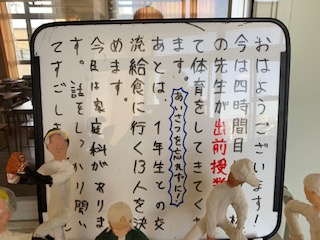 おはようございます！
今は四時間目
の先生が出前授業
て体育をしてきてく
ます。
あいさつを忘れずに！
あとは、1年生との交
流給食に行く13人を決
めます。
今日は家庭科がありま
す。話をしっかり聞い
てすごし